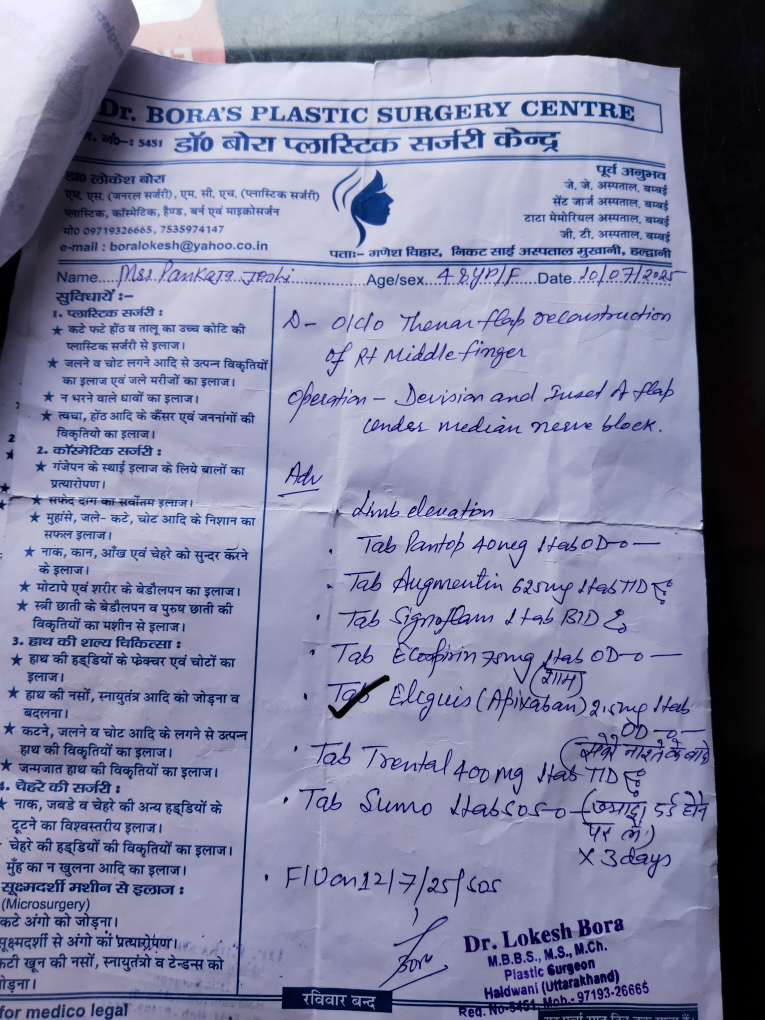 Dr. BORA'S PLASTIC SURGERY CENTRE
नं०-: 5451 डॉ0 बोरा प्लास्टिक सर्जरी केन्द्र
डा0 लोकेश बोरा
एम. एस. (जनरल सर्जरी), एम. सी. एच. (प्लास्टिक सर्जरी)
प्लास्टिक, कॉस्मेटिक, हैण्ड, बर्न एवं माइकोसर्जन
मो0 09719326665, 7535974147
e-mail : boralokesh@yahoo.co.in
पूर्व अनुभव
जे. जे. अस्पताल, बम्बई
सेंट जार्ज अस्पताल, बम्बई
टाटा मेमोरियल अस्पताल, बम्बई
जी. टी. अस्पताल, बम्बई
पताः- गणेश विहार, निकट साई अस्पताल मुखानी, हल्द्वानी
Name....Mrs Pankaja Joshi....Age/sex..48yr/F....Date 10/07/2025
सुविधायें :-
1. प्लास्टिक सर्जरी :
★ कटे फटे होंठ व तालू का उच्च कोटि की
प्लास्टिक सर्जरी से इलाज।
★ जलने व चोट लगने आदि से उत्पन विकृतियों
का इलाज एवं जले मरीजों का इलाज।
★ न भरने वाले धावों का इलाज।
★ त्वचा, होंठ आदि के कैंसर एवं जननांगों की
विकृतियो का इलाज।
2. कॉस्मेटिक सर्जरी :
★ गंजेपन के स्थाई इलाज के लिये बालों का
प्रत्यारोपण।
★ सफेद दाग का सर्वोतम इलाज।
★ मुहांसे, जले- कटे, चोट आदि के निशान का
सफल इलाज।
★ नाक, कान, आँख एवं चेहरे को सुन्दर करने
के इलाज।
★ मोटापे एवं शरीर के बेडौलपन का इलाज।
★ स्त्री छाती के बेडौलपन व पुरुष छाती की
विकृतियों का मशीन से इलाज।
3. हाथ की शल्य चिकित्सा :
★ हाथ की हड्डियों के फ्रेक्चर एवं चोटों का
इलाज।
★ हाथ की नसों, स्नायुतंत्र आदि को जोड़ना व
बदलना।
★ कटने, जलने व चोट आदि के लगने से उत्पन
हाथ की विकृतियों का इलाज।
★ जन्मजात हाथ की विकृतियों का इलाज।
4. चेहरे की सर्जरी :
★ नाक, जबडे व चेहरे की अन्य हड्डियों के
टूटने का विश्वस्तरीय इलाज।
चेहरे की हड्डियों की विकृतियों का इलाज।
मुँह का न खुलना आदि का इलाज।
सूक्ष्मदर्शी मशीन से इलाज :
(Microsurgery)
कटे अंगो को जोड़ना।
सूक्ष्मदर्शी से अंगो का प्रत्यारोपण।
कटी खून की नसों, स्नायुतंत्रो व टेन्डन्स को
जोड़ना।
D- O/c/o Thenar flap reconstruction
of Rt Middle finger
Operation - Devision and Inset of flap
under median nerve block.
Adv
. Limb elevation
. Tab Pantop 40mg 1tab OD-o-
. Tab Augmentin 625mg 1tab TID
. Tab Signoflam 1tab BID
. Tab Ecosprin 75mg 1tab OD-o-
(शाम)
. Tab Eliquis (Apixaban) 2.5mg 1tab
OD-o-
(सुबह नाश्ते के बाद)
. Tab Trental 400mg 1tab TID
. Tab Sumo 1tab SOS-o- (ज्यादा दर्द होने
पर लें)
x 3days
. F/U on 12/7/25/SOS
Bora
Dr. Lokesh Bora
M.B.B.S., M.S., M.Ch.
Plastic Surgeon
Haldwani (Uttarakhand)
Reg. No-5451, Mob.- 97193-26665
रविवार बन्द
for medico legal